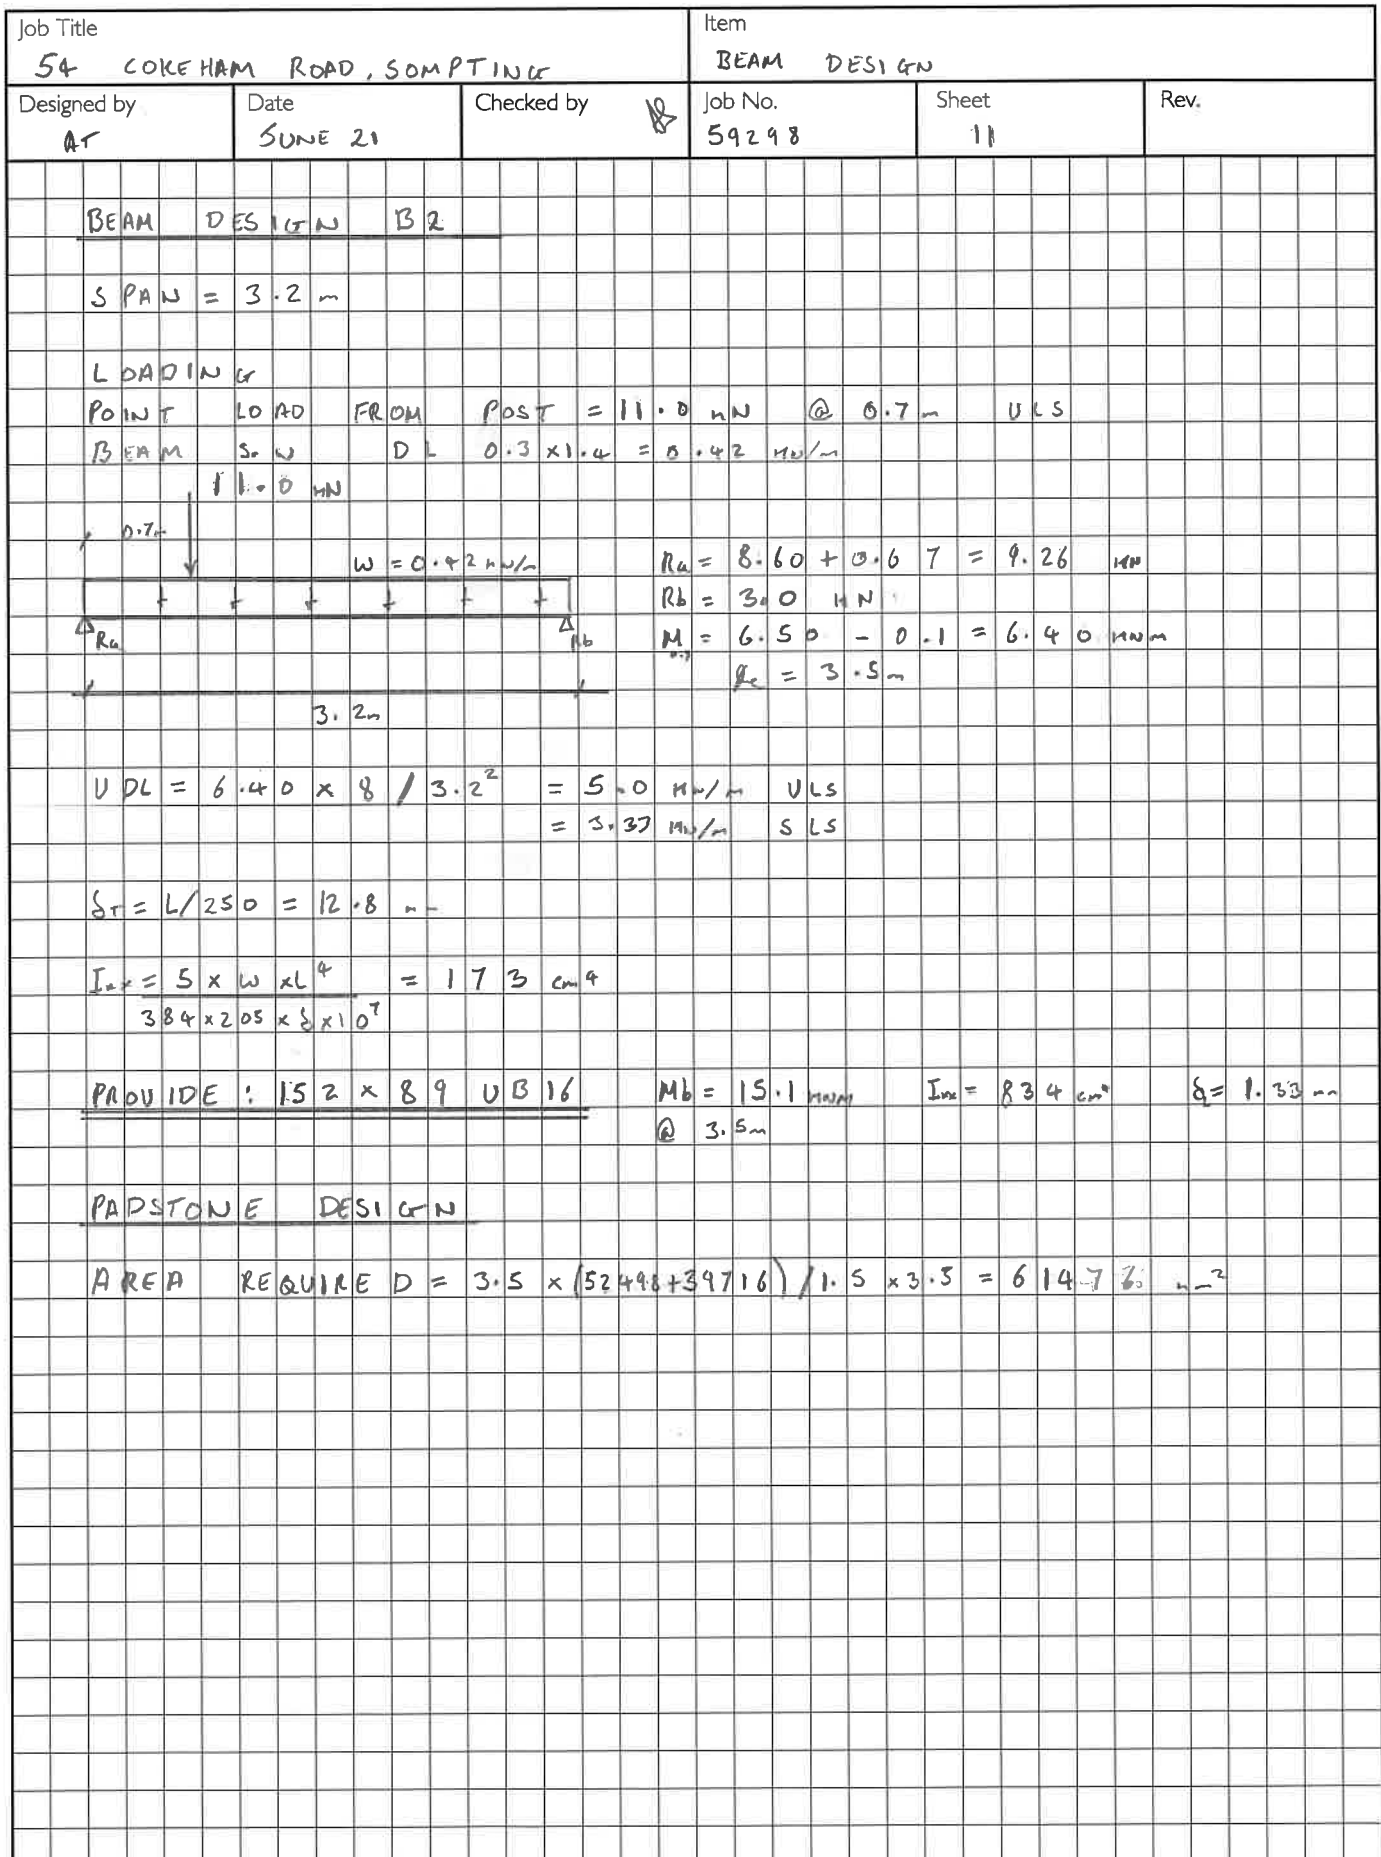 Job Title
54 COKEHAM ROAD, SOMPTING
Item
BEAM DESIGN
Designed by
AT
Date
JUNE 21
Checked by
Job No.
59298
Sheet
11
Rev.
BEAM DESIGN B2
SPAN = 3.2 m
LOADING
POINT LOAD FROM POST = 11.0 kN @ 0.7m ULS
BEAM S.W DL 0.3 x 1.4 = 0.42 kN/m
11.0 kN
0.7m
W = 0.42 kN/m
Ra = 8.60 + 0.67 = 9.26 kN
Rb = 3.0 kN
Ra Rb
M0.7 = 6.50 - 0.1 = 6.40 kNm
le = 3.5m
3.2m
UDL = 6.40 x 8 / 3.2² = 5.0 kN/m ULS
= 3.33 kN/m SLS
δT = L/250 = 12.8 mm
Ixx = 5 x W x L⁴ = 173 cm⁴
384 x 205 x δ x 10⁷
PROVIDE : 152 x 89 UB 16 Mb = 15.1 kNm Ixx = 834 cm⁴ δ = 1.33 mm
@ 3.5m
PADSTONE DESIGN
AREA REQUIRED = 3.5 x (52498+39716) / 1.5 x 3.5 = 61476 mm²